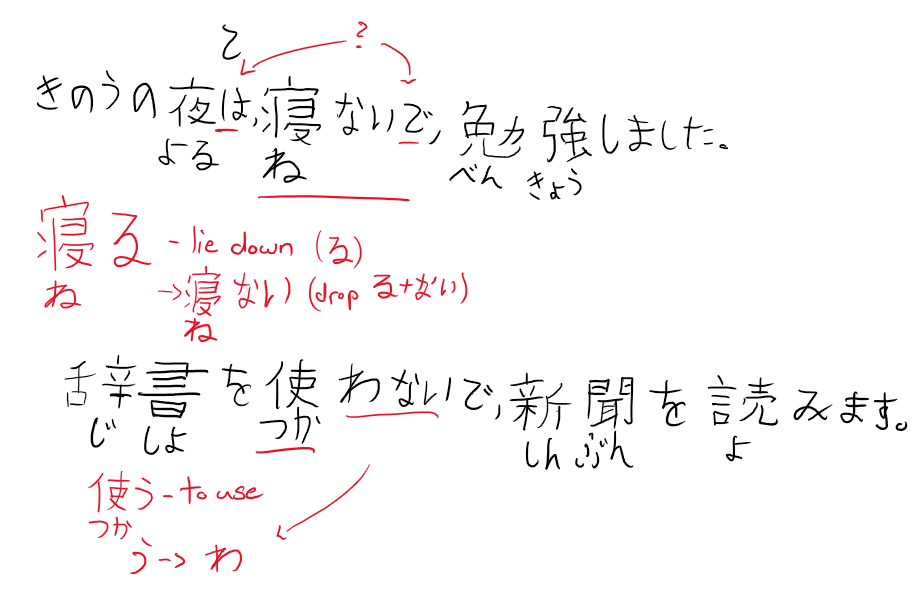 で ?
きのうの夜は,寝ないで,勉強しました。
よる ね べん きょう
寝る - lie down (る)
ね →寝ない (drop る+ない)
ね
辞書を使わないで,新聞を読みます。
じ しょ つか しん ぶん よ
使う - to use
つか
う -> わ